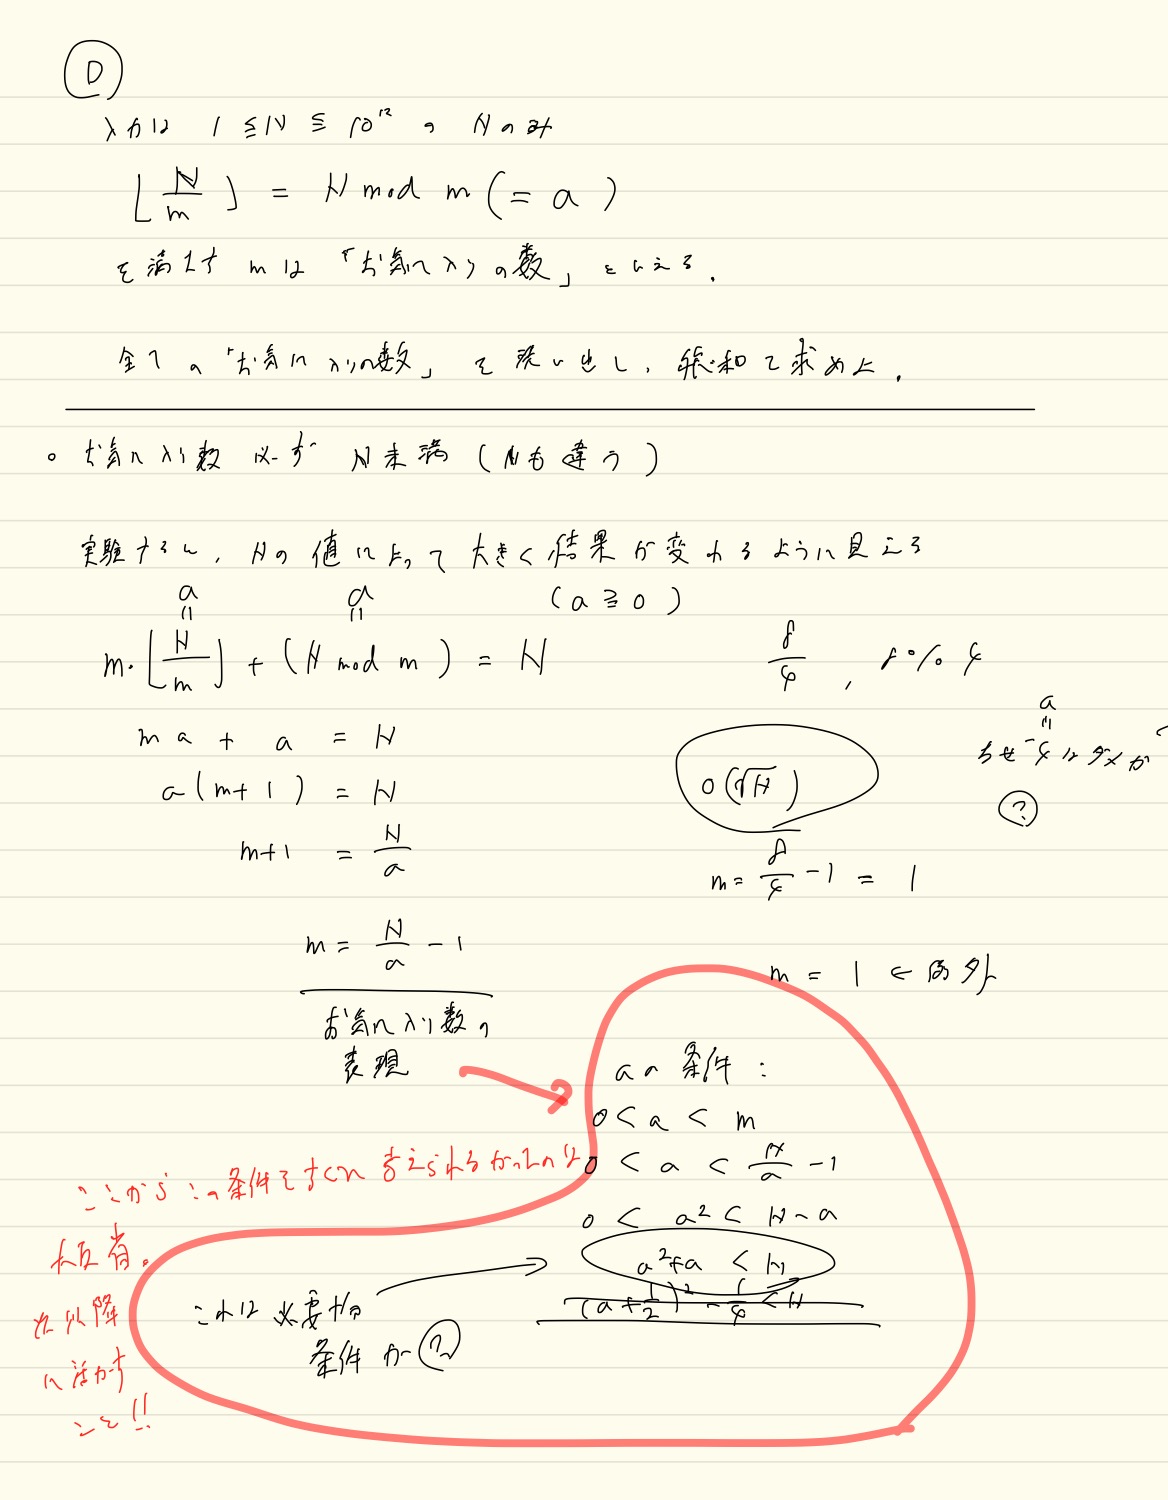 D
入力は 1 ≦ N ≦ 10^12 の Nのみ
⌊N/m⌋ = N mod m (= a)
を満たす mは 「お気に入りの数」 といえる.
全ての 「お気に入りの数」 を洗い出し、総和を求めよ.
○ お気に入り数 必ず N未満 (Nも違う)
実験すると, Nの値によって大きく結果が変わるように見える
a a (a ≧ 0)
m・⌊N/m⌋ + (N mod m) = N
8/4 , 8%4
ma + a = N
a(m+1) = N
m+1 = N/a
m = N/a - 1
お気に入り数の
表現
a
なぜ 4はダメか
?
O(√N)
m = 8/4 - 1 = 1
m = 1 ← 例外
aの条件:
0 < a < m
0 < a < N/a - 1
0 < a² < N - a
a² + a < N
(a + 1/2)² - 1/4 < N
これは必要な
条件か?
ここからこの条件をすぐに考えられなかったのは
大反省。
次以降
に活かす
こと!!